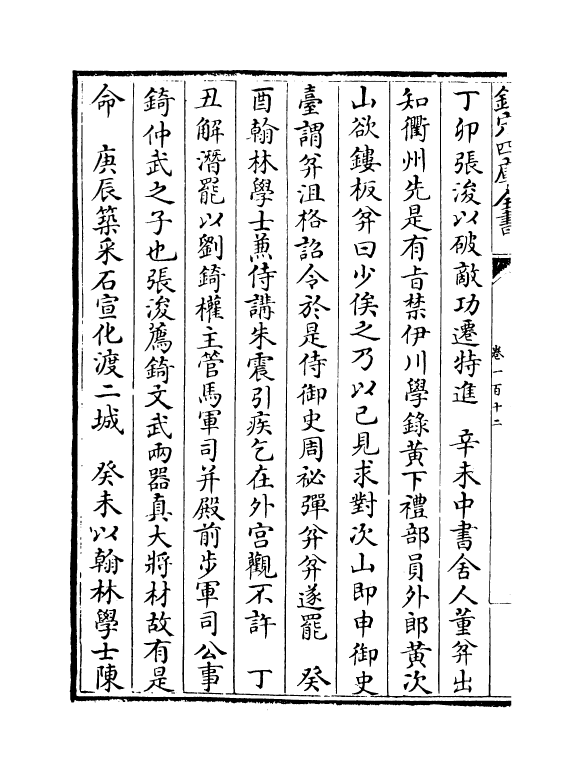 欽定四庫全書
卷一百十二
丁卯張浚以破敵功遷特進　辛未中書舍人董弅出
知衢州先是有旨禁伊川學錄黃下禮部員外郎黃次
山欲鏤板弅曰少俟之乃以己見求對次山即申御史
臺謂弅沮格詔令於是侍御史周祕彈弅弅遂罷　癸
酉翰林學士兼侍講朱震引疾乞在外宮觀不許　丁
丑解潛罷以劉錡權主管馬軍司并殿前步軍司公事
錡仲武之子也張浚薦錡文武兩器真大將材故有是
命　庚辰築采石宣化渡二城　癸未以翰林學士陳